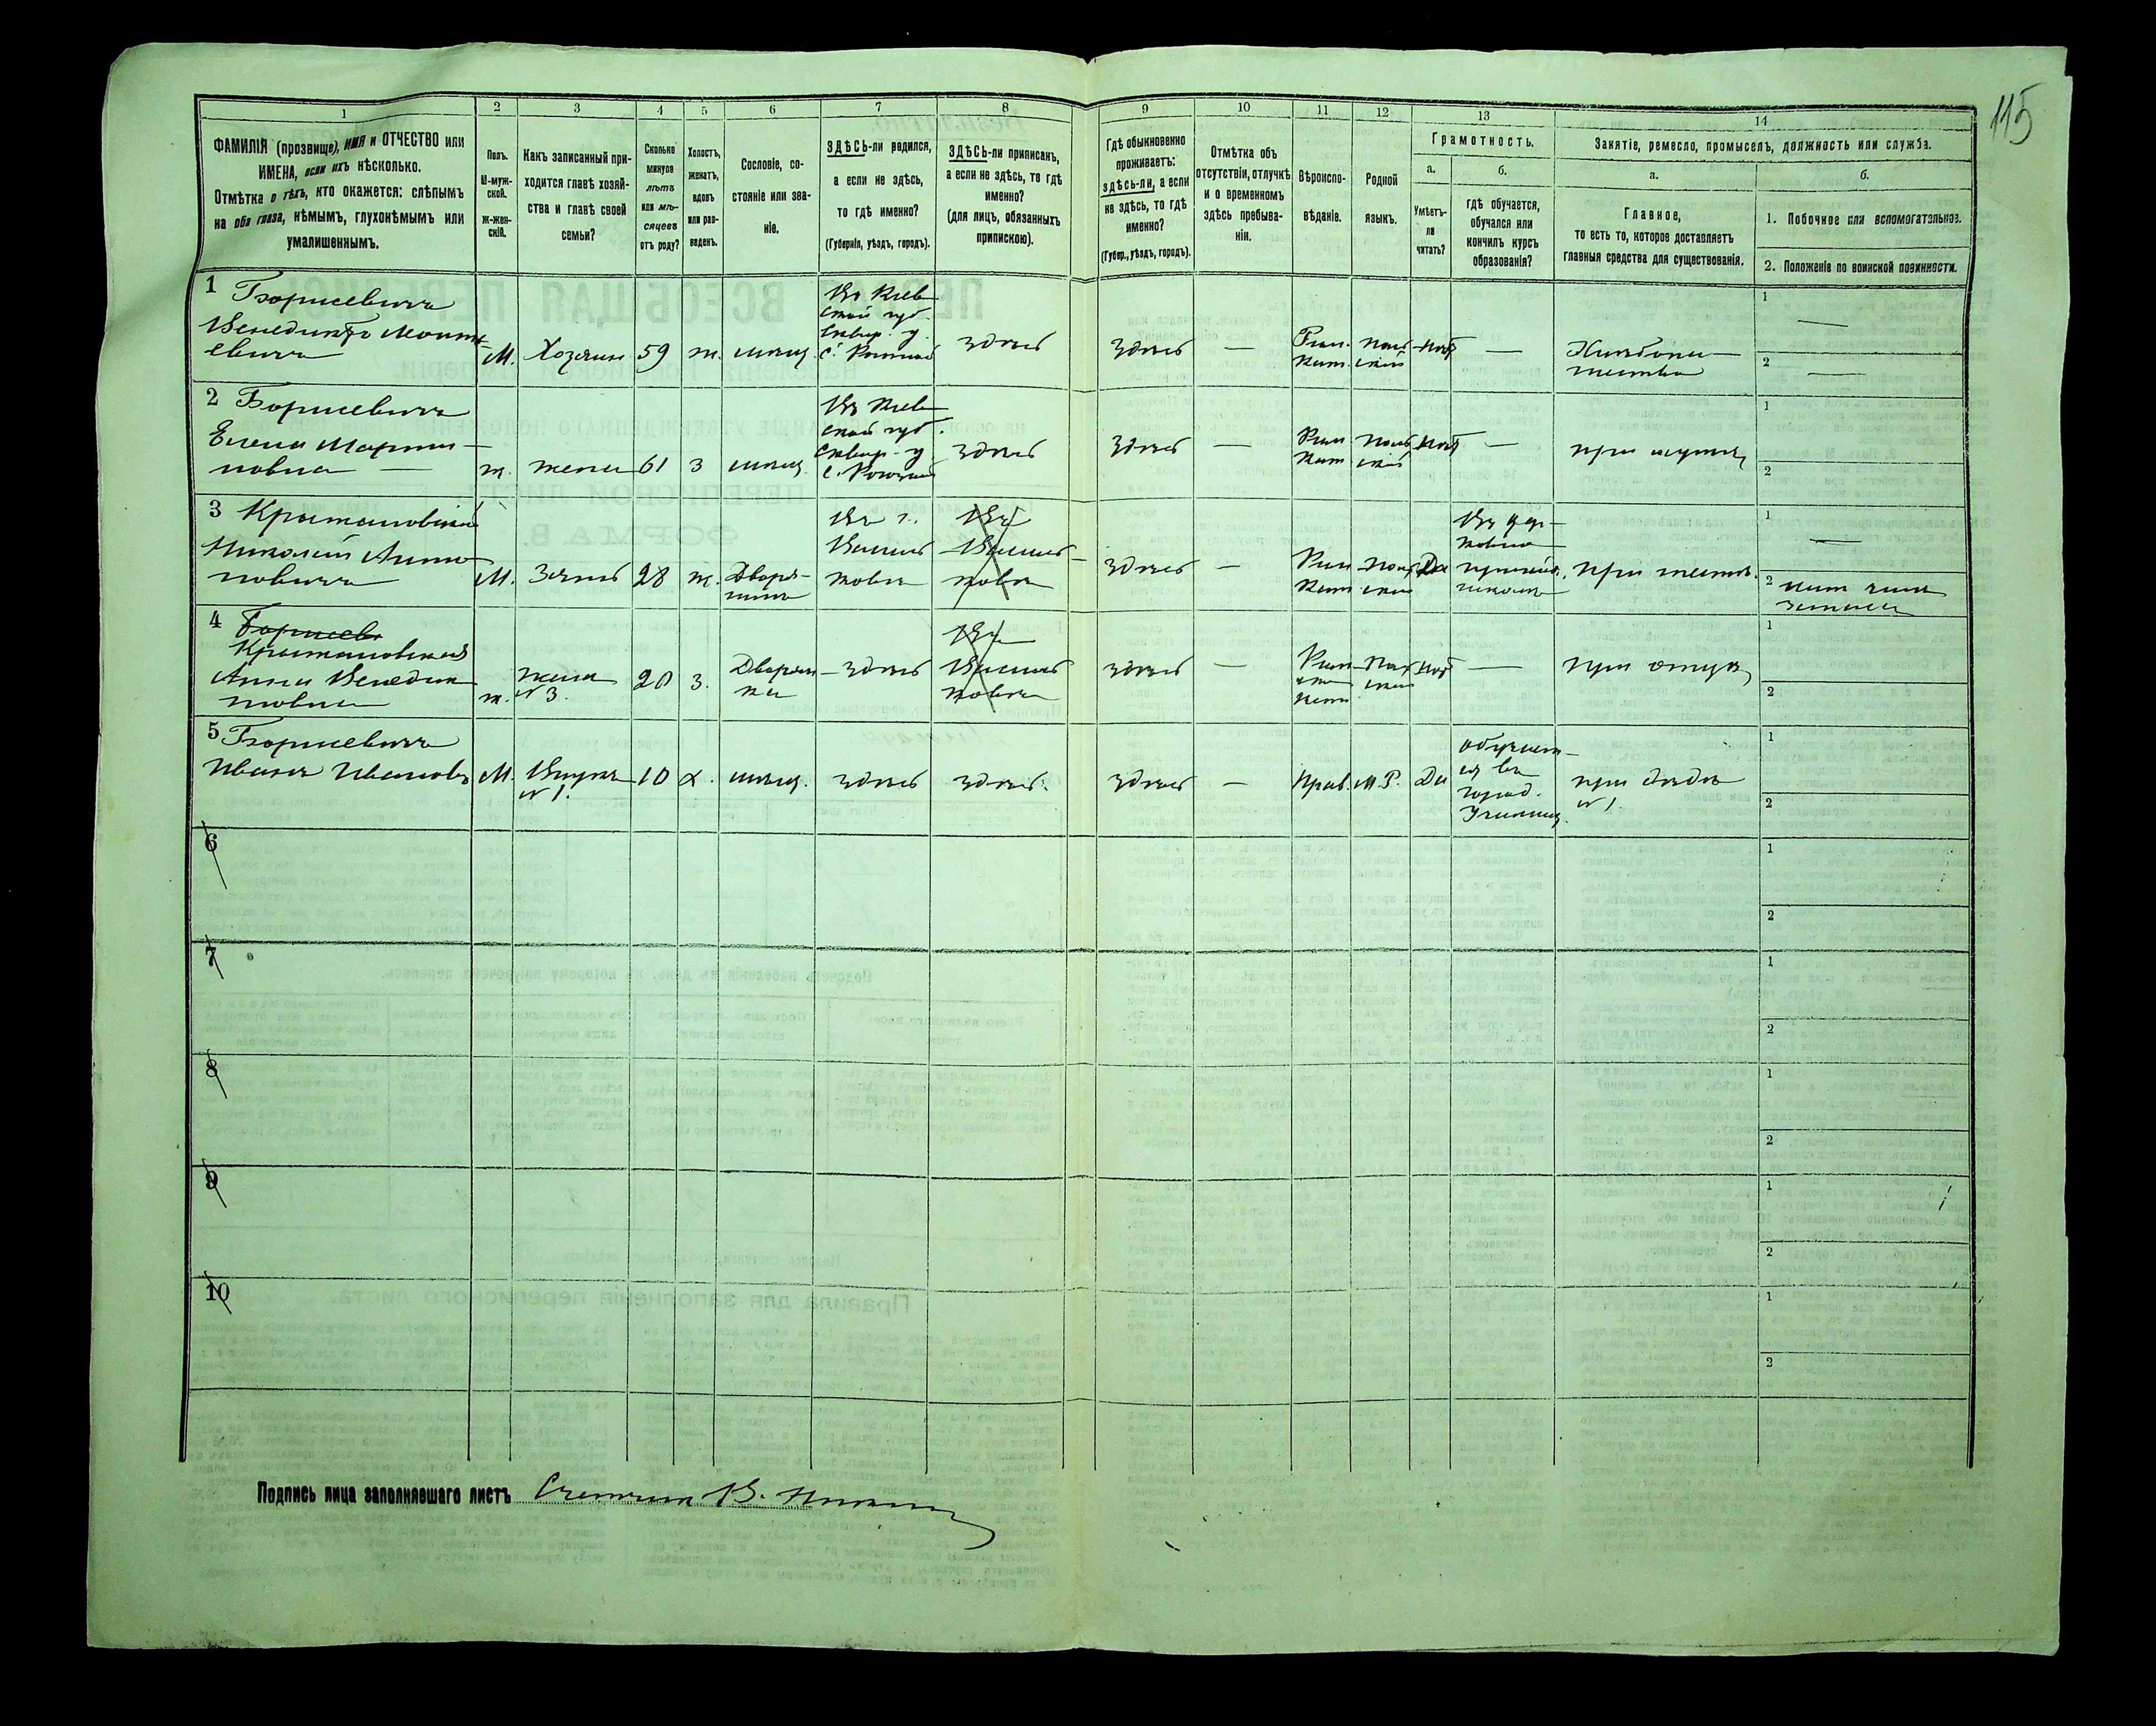 115
1 2 3 4 5 6 7 8 9 10 11 12 13 14
ФАМИЛІЯ (прозвище), ИМЯ и ОТЧЕСТВО или
ИМЕНА, если ихъ нѣсколько.
Отмѣтка о тѣхъ, кто окажется: слѣпымъ
на оба глаза, нѣмымъ, глухонѣмымъ или
умалишеннымъ.
Полъ.
М-муж-
ской.
Ж-жен-
скій.
Какъ записанный при-
ходится главѣ хозяй-
ства и главѣ своей
семьи?
Сколько
минуло
лѣтъ
или мѣ-
сяцевъ
отъ роду?
Холостъ,
женатъ,
вдовъ
или раз-
веденъ.
Сословіе, со-
стояніе или зва-
ніе.
ЗДѢСЬ-ли родился,
а если не здѣсь,
то гдѣ именно?
(Губернія, уѣздъ, городъ).
ЗДѢСЬ-ли приписанъ,
а если не здѣсь, то гдѣ
именно?
(для лицъ, обязанныхъ
припискою).
Гдѣ обыкновенно
проживаетъ:
здѣсь-ли, а если
не здѣсь, то гдѣ
именно?
(Губер., уѣздъ, городъ).
Отмѣтка объ
отсутствіи, отлучкѣ
и о временномъ
здѣсь пребыва-
ніи.
Вѣроиспо-
вѣданіе.
Родной
языкъ.
Грамотность.
а.
Умѣетъ-
ли
читать?
б.
гдѣ обучается,
обучался или
кончилъ курсъ
образованія?
Занятіе, ремесло, промыселъ, должность или служба.
а.
Главное,
то есть то, которое доставляетъ
главныя средства для существованія.
б.
1. Побочное или вспомогательное.
2. Положеніе по воинской повинности.
1 Борисевичъ
Венедиктъ
евичъ
М. Хозяинъ 59 ж. мѣщ.
Въ Кіев
ской губ.
Сквир. у.
здѣсь
здѣсь —
Рим.
Кат.
Поль
скій
нѣтъ —
Хлѣбопа
шество
1 —
2 —
2 Борисевичъ
Елена Марти-
новна —
ж. жена 61 з мѣщ.
Въ Кіев
ской губ.
Сквир. у.
здѣсь
здѣсь —
Рим
Кат
Поль
скій
нѣтъ —
при мужѣ
1
2
3
Николай Анто-
новичъ
М. Зять 28 ж. Дворя-
нинъ
Въ г.
Василь
ковѣ
Въ
Василь
ковѣ
здѣсь —
Рим
Кат
Поль
скій
Да
Въ цер-
ковно
приход.
школѣ
при тестѣ
1 —
2
4 Борисев
Анна Венедик
товна
ж.
жена
№ 3.
20 з.
Дворян
ка
здѣсь
Въ
Василь
ковѣ
здѣсь —
Рим
ско
Кат
Поль
скій
нѣтъ —
при отцѣ
1
2
5 Борисевичъ
Иванъ Ивановъ
М. Внукъ
№ 1.
10 х. мѣщ. здѣсь здѣсь.
здѣсь — Прав. М.Р. Да
обучает-
ся въ
город.
Училищ.
при дѣдѣ
№ 1.
1
2
6
1
2
7
1
2
8
1
2
9
1
2
10
1
2
Подпись лица заполнявшаго листъ